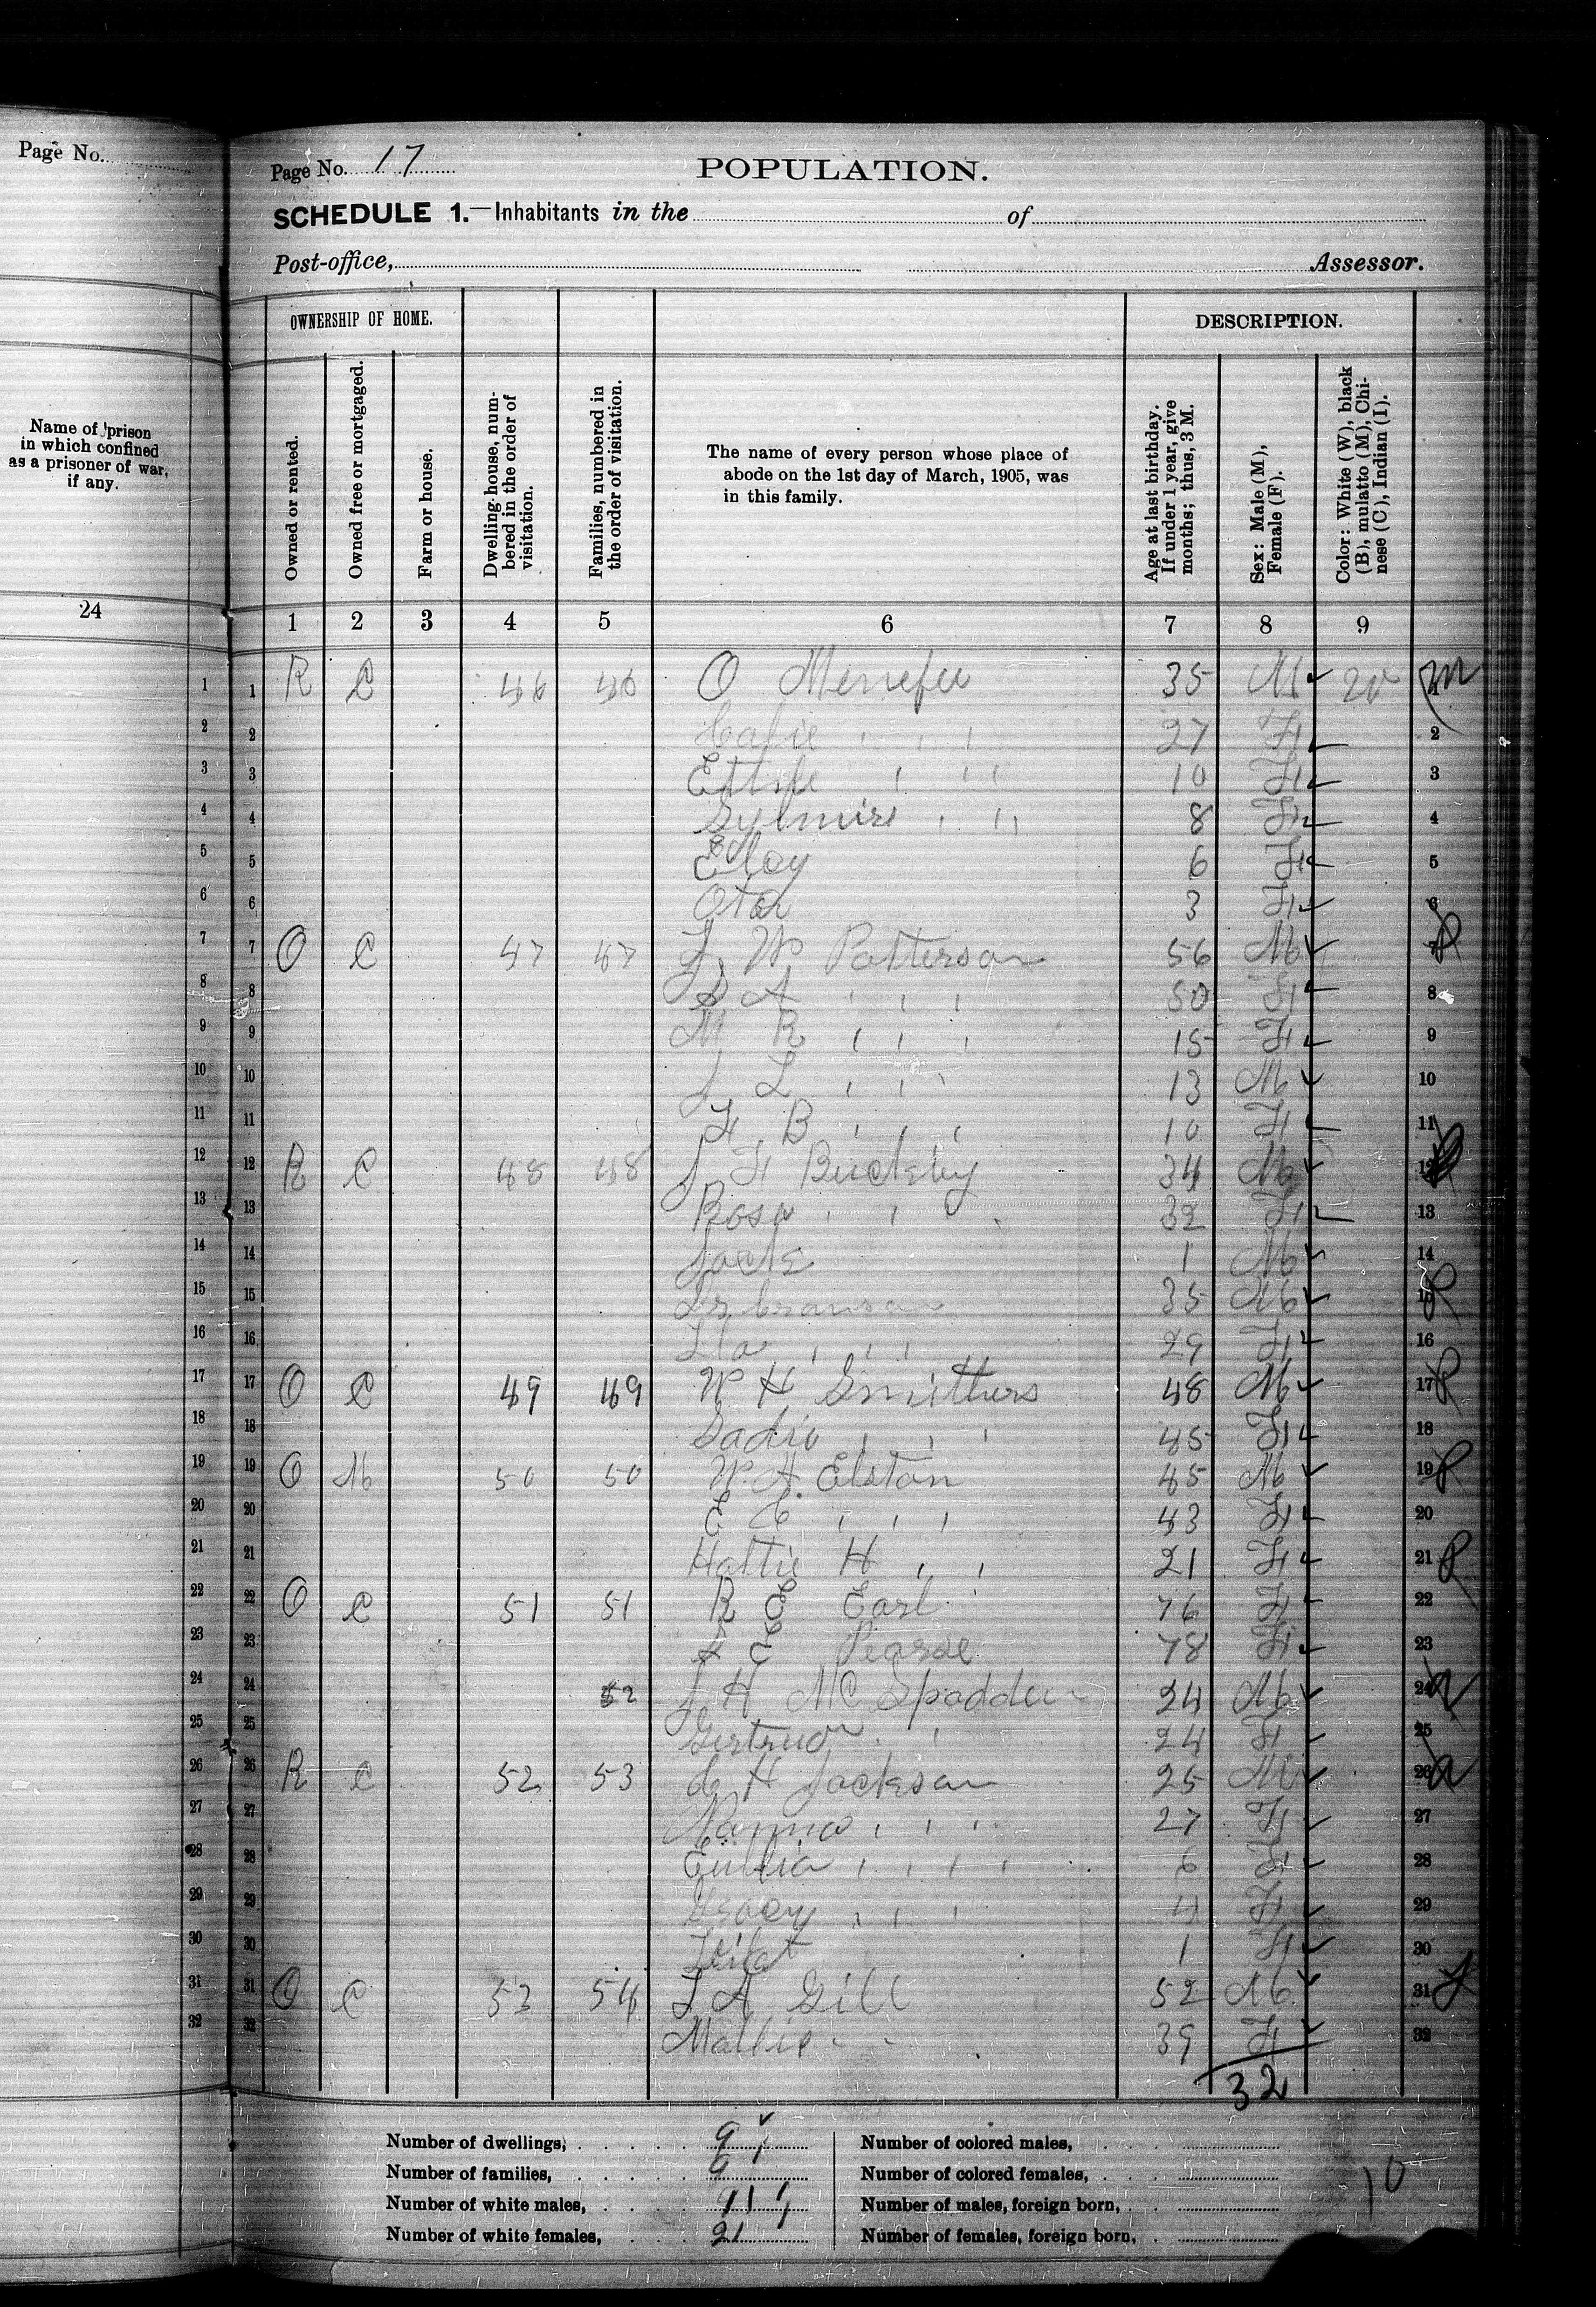 Page No.
Name of prison
in which confined
as a prisoner of war,
if any.
24
Page No. 17
POPULATION.
SCHEDULE 1.—Inhabitants in the of
Post-office, Assessor.
OWNERSHIP OF HOME.
DESCRIPTION.
Owned or rented.
Owned free or mortgaged.
Farm or house.
Dwelling-house, num-
bered in the order of
visitation.
Families, numbered in
the order of visitation.
The name of every person whose place of
abode on the 1st day of March, 1905, was
in this family.
Age at last birthday.
If under 1 year, give
months; thus, 3 M.
Sex: Male (M),
Female (F).
Color: White (W), black
(B), mulatto (M), Chi-
nese (C), Indian (I).
1 2 3 4 5 6 7 8 9
1 1 R C 46 46 O Menefee 35 M 1
2 2 27 F 2
3 3 10 F 3
4 4 8 F 4
5 5 6 F 5
6 6 3 F 6
7 7 O C 47 47 W Patterson 56 M 7
8 8 A 50 F 8
9 9 M R 15 F 9
10 10 J L 13 M 10
11 11 F B 10 F 11
12 12 R C 48 48 J F Buckley 34 M 12
13 13 Rosa 32 F 13
14 14 Jack 1 M 14
15 15 35 M 15
16 16 29 F 16
17 17 O C 49 49 W H Smithers 48 M 17
18 18 Sadie 45 F 18
19 19 O M 50 50 W. H. Elston 45 M 19
20 20 E C 43 F 20
21 21 Hattie H 21 F 21
22 22 O C 51 51 R E Earl 76 F 22
23 23 E Pearse 78 F 23
24 24 52 J H McSpadden 24 M 24
25 25 Gertrud 24 F 25
26 26 R C 52 53 H Jackson 25 M 26
27 27 27 F 27
28 28 6 F 28
29 29 Gracy 4 F 29
30 30 1 F 30
31 31 O C 53 54 A Gill 52 M 31
32 32 Mollie 39 F 32
32
Number of dwellings, 9
Number of families, 9
Number of white males, 11
Number of white females, 21
Number of colored males,
Number of colored females,
Number of males, foreign born,
Number of females, foreign born,
10